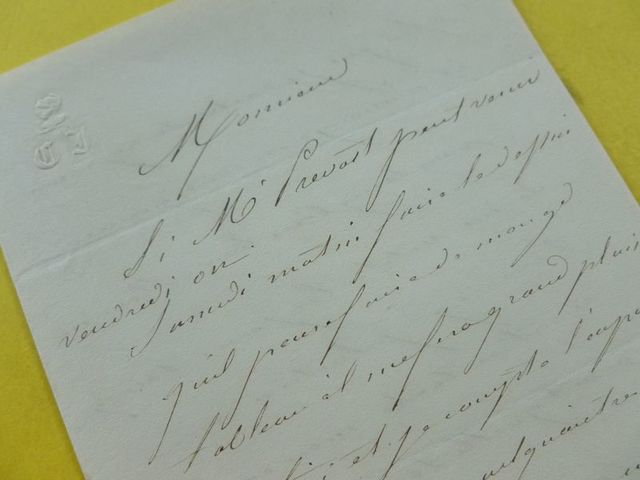 Monsieur
Si Mr Prevost peut venir
vendredi ou
Samedi matin faire le dessin
qu'il pense faire de mon gd
tableau il me fera grand plaisir
et je compte